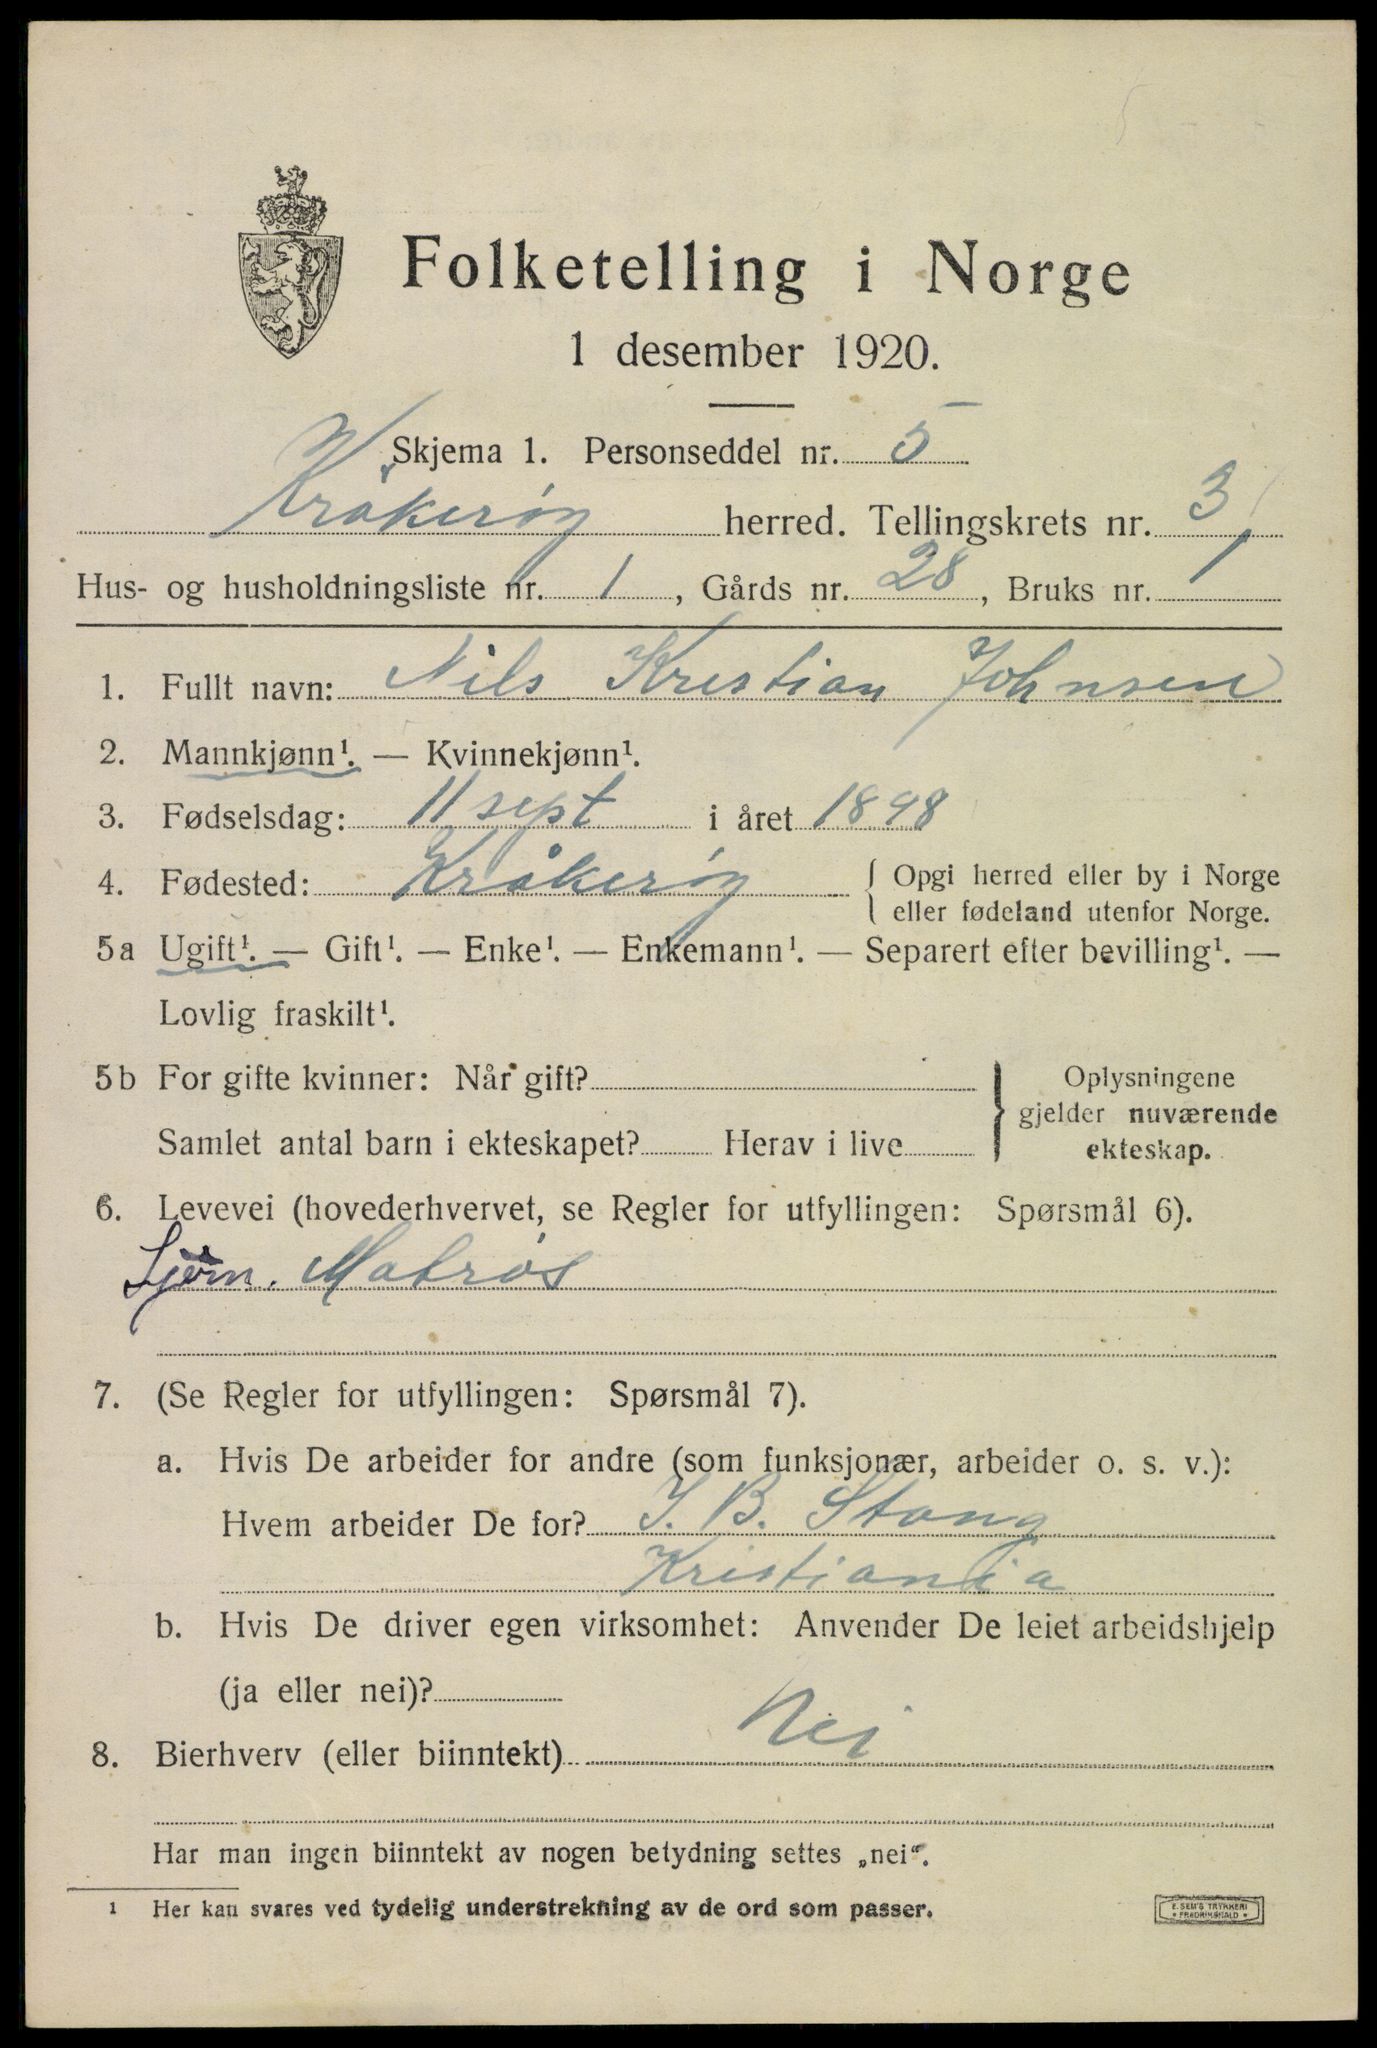 Folketelling i Norge
1 desember 1920.
Skjema 1. Personseddel nr. 5
Kråkerøy herred. Tellingskrets nr. 3
Hus- og husholdningsliste nr. 1, Gårds nr. 28, Bruks nr. 1
1. Fullt navn: Nils Kristian Johnsen
2. Mannkjønn¹. — Kvinnekjønn¹.
3. Fødselsdag: 11 sept i året 1898
4. Fødested: Kråkerøy { Opgi herred eller by i Norge
eller fødeland utenfor Norge.
5a Ugift¹. — Gift¹. — Enke¹. — Enkemann¹. — Separert efter bevilling¹. —
Lovlig fraskilt¹.
5b For gifte kvinner: Når gift? } Oplysningene
gjelder nuværende
Samlet antal barn i ekteskapet? Herav i live
ekteskap.
6. Levevei (hovederhvervet, se Regler for utfyllingen: Spørsmål 6).
Sjøm. Matrós
7. (Se Regler for utfyllingen: Spørsmål 7).
a. Hvis De arbeider for andre (som funksjonær, arbeider o. s. v.):
Hvem arbeider De for? J. B. Stang
Kristiania
b. Hvis De driver egen virksomhet: Anvender De leiet arbeidshjelp
(ja eller nei)?
8. Bierhverv (eller biinntekt) Nei
Har man ingen biinntekt av nogen betydning settes „nei“.
1 Her kan svares ved tydelig understrekning av de ord som passer.
E. SEM'S TRYKKERI
FREDRIKSHALD